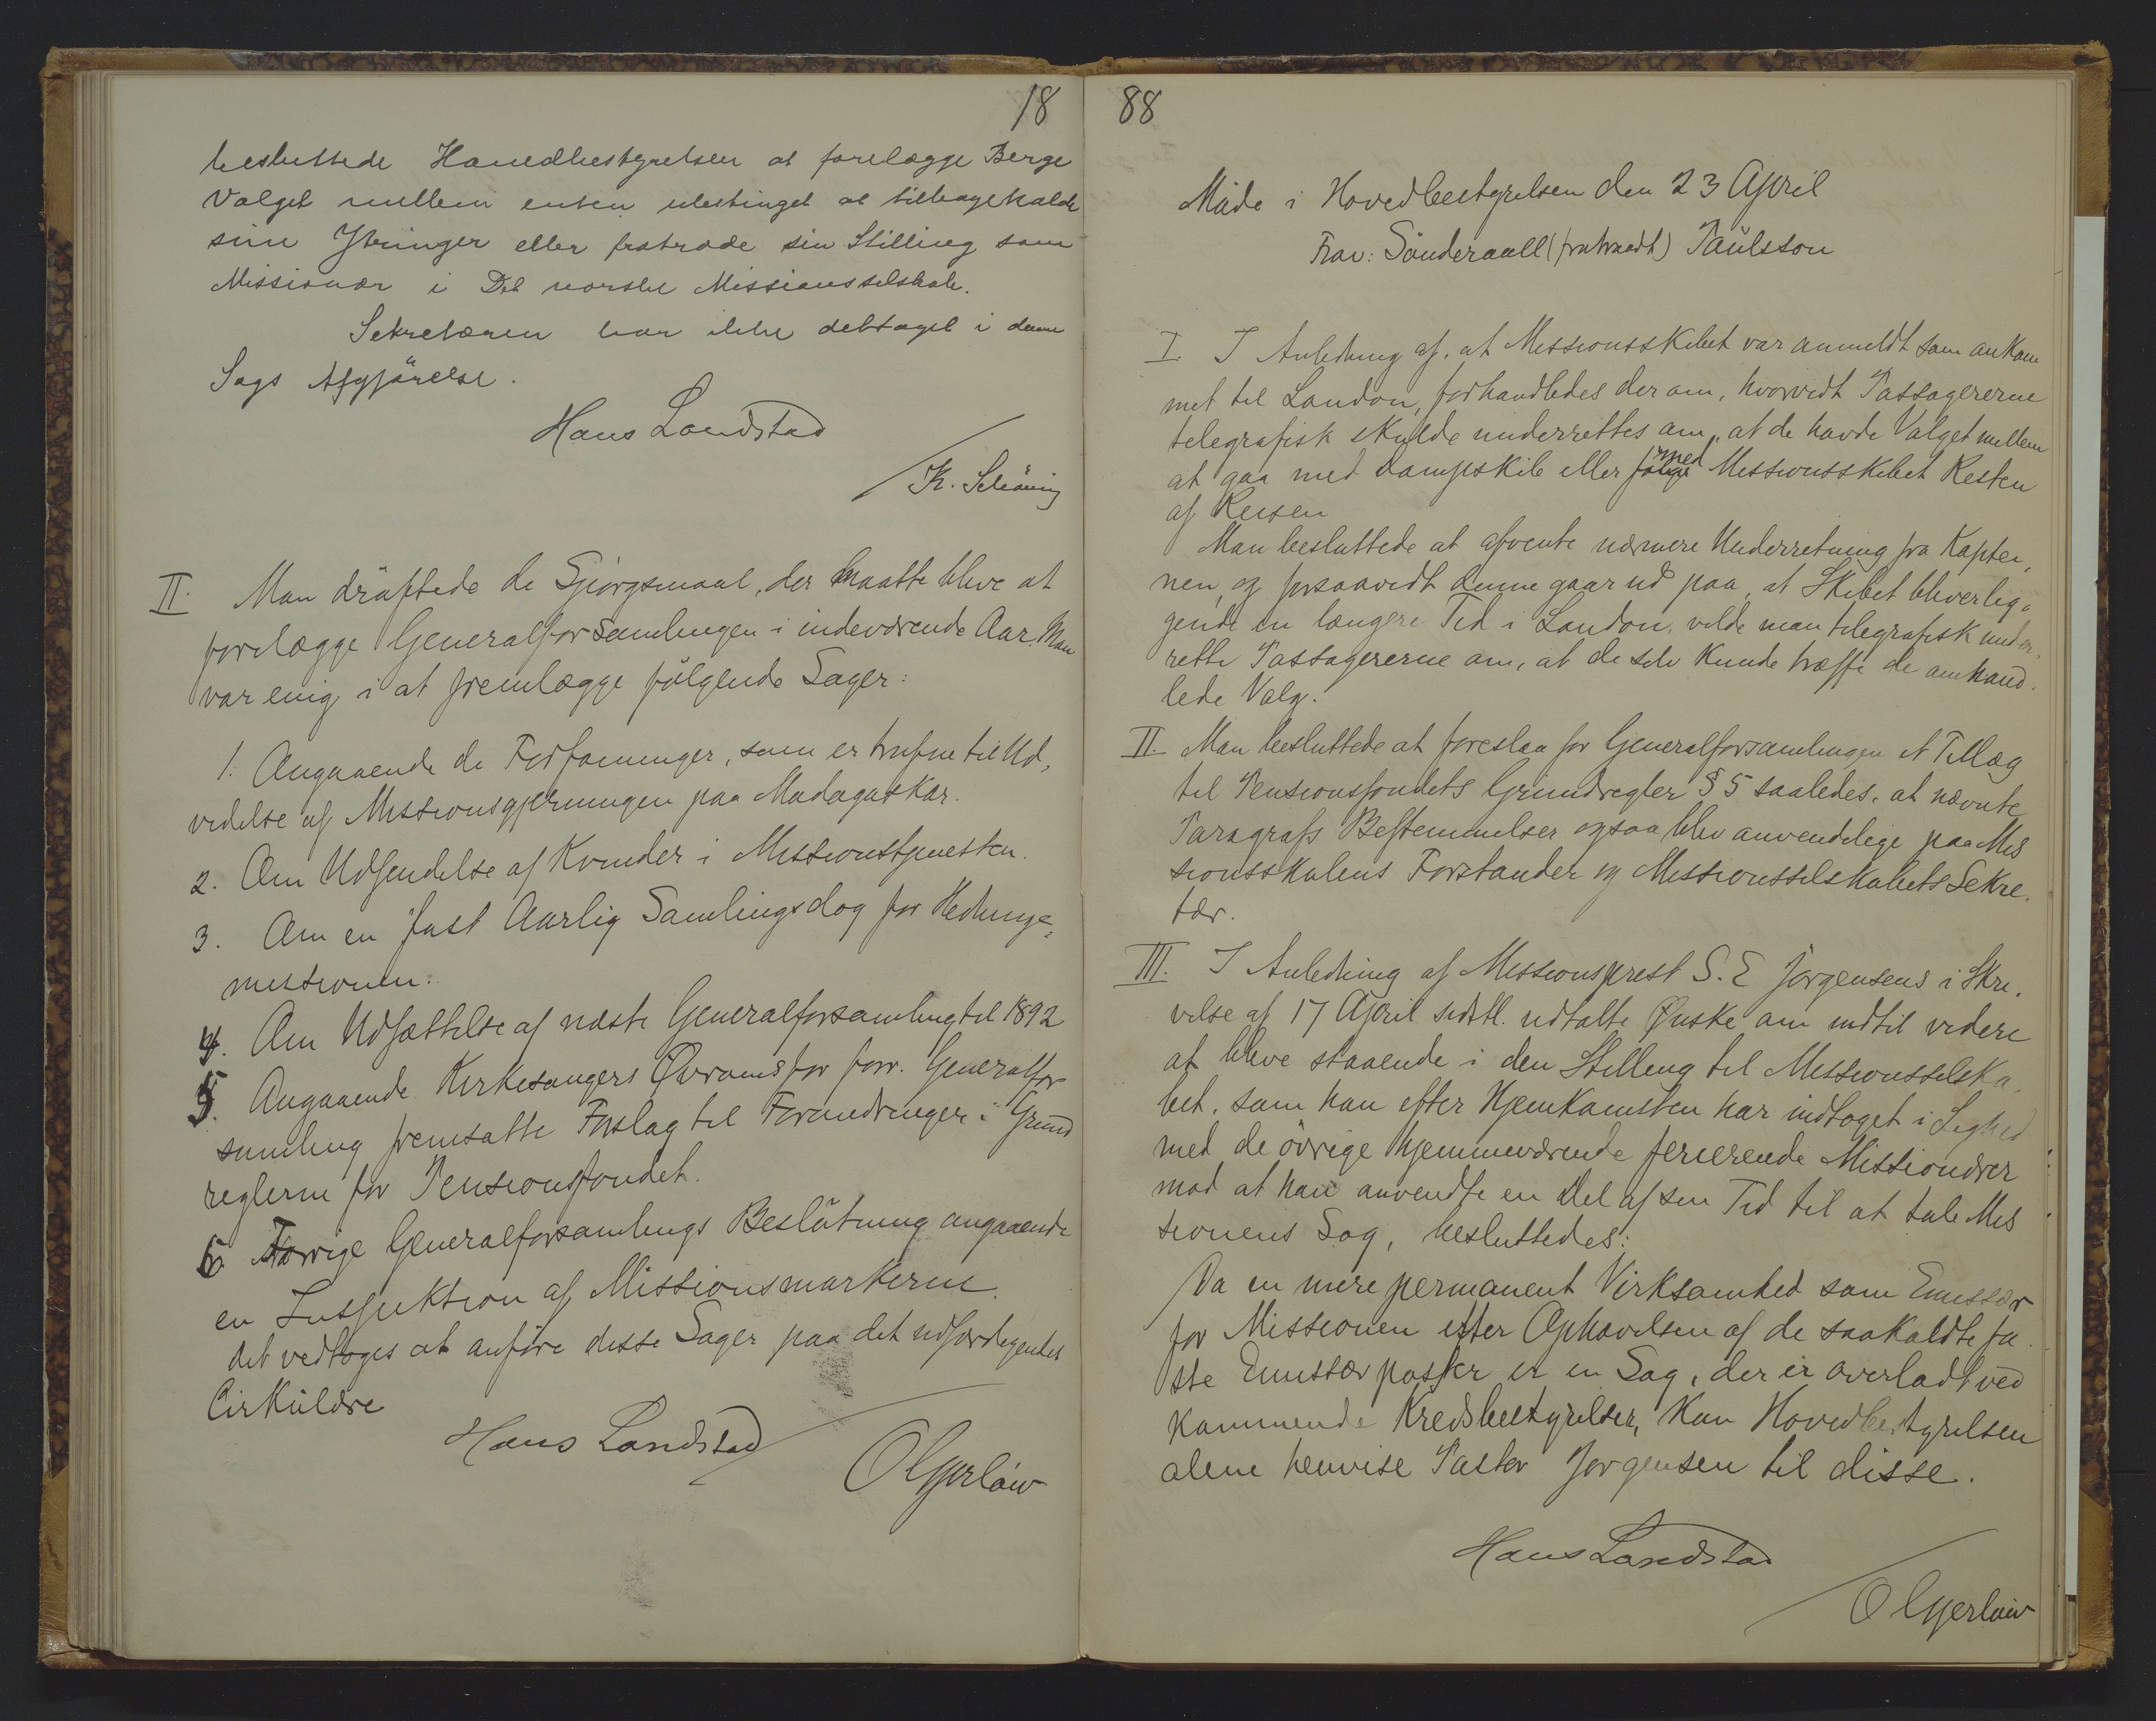 18
besluttede Hovedbestyrelsen at forelægge Borge
Valget mellem enten ubetinget at tilbagekalde
sine Ytringer eller fratræde sin Stilling som
Missionær i Det norske Missionsselskab.
Sekretæren har ikke deltaget i denne
Sags Afgjörelse.
Hans Landstad
K. Schöning
II. Man dröftede de Spörgsmaal, der maatte blive at
forelægge Generalforsamlingen i indeværende Aar. Man
var enig i at fremlægge fölgende Sager:
1. Angaaende de Forføininger, som er trufne til Ud,
videlse af Missionsgjerningen paa Madagaskar.
2. Om Udsendelse af Kvinder i Missionstjenesten.
3. Om en fast Aarlig Samlingsdag for Hedninge,
missionen.
4. Om Udsættelse af næste Generalforsamling til 1892
5. Angaaende Kirkesanger Øvrams for forr. Generalfor
samling fremsatte Forslag til Forandringer i Grund
reglerne for Pensionsfondet.
6. Forrige Generalforsamlings Beslutning angaaende
en Inspektion af Missionsmarkerne.
det vedtoges at anföre disse Sager paa det udfærdigendes
Cirkulære
Hans Landstad
O Gjerlöw
88
Möde i Hovedbestyrelsen den 23 April
Frav: Sönderaall (fratraadt) Paulsson
I I Anledning af, at Missionsskibet var anmeldt som ankom
met til London, forhandledes der om, hvorvidt Passagererne
telegrafisk skulde underrettes om, at de havde Valget mellem
at gaa med Dampskib eller fölge med Missionsskibet Resten
af Reisen
Man besluttede at afvente nærmere Underretning fra Kaptei,
nen, og forsaavidt denne gaar ud paa, at Skibet bliver lig,
gende en længere Tid i London, vilde man telegrafisk under,
rette Passagererne om, at de selv kunde træffe de omhand,
lede Valg.
II. Man besluttede at foreslaa for Generalforsamlingen et Tillæg
til Pensionsfondets Grundregler § 5 saaledes, at nævnte
Paragrafs Bestemmelser ogsaa blev anvendelige paa Mis
sionsskolens Forstander og Missionsselskabets Sekre,
tær.
III. I Anledning af Missionsprest S. E Jörgensens i Skri,
velse af 17 April sidstl. udtalte Ønske om indtil videre
at blive staaende i den Stilling til Missionsselska,
bet, som han efter Hjemkomsten har indtaget i Lighed
med de övrige hjemmeværende ferierende Missionærer
mod at han anvendte en Del af sin Tid til at tale Mis
sionens Sag, besluttedes:
Da en mere permanent Virksomhed som Emissær
for Missionen efter Ophævelsen af de saakaldte fa,
ste Emissærposter er en Sag, der er overladt ved
kommende Kredsbestyrelser, kan Hovedbestyrelsen
alene henvise Pastor Jorgensen til disse.
Hans Landstad
O Gjerlöw